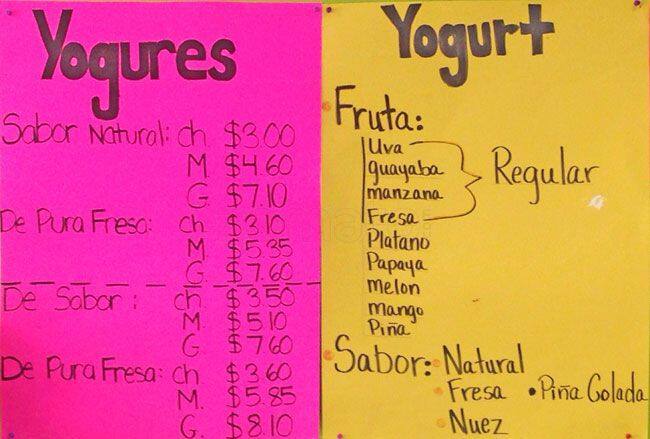 Yogures
Sabor Natural: ch $3.00
M $4.60
G $7.10
De Pura Fresa: ch $3.10
M $5.35
G. $7.60
De Sabor: ch. $3.50
M. $5.10
G $7.60
De Pura Fresa: ch $3.60
M. $5.85
G. $8.10
Yogurt
Fruta:
Uva
guayaba
manzana
Fresa
Regular
Platano
Papaya
melon
mango
Piña
Sabor: Natural
• Fresa • Piña Colada
• Nuez